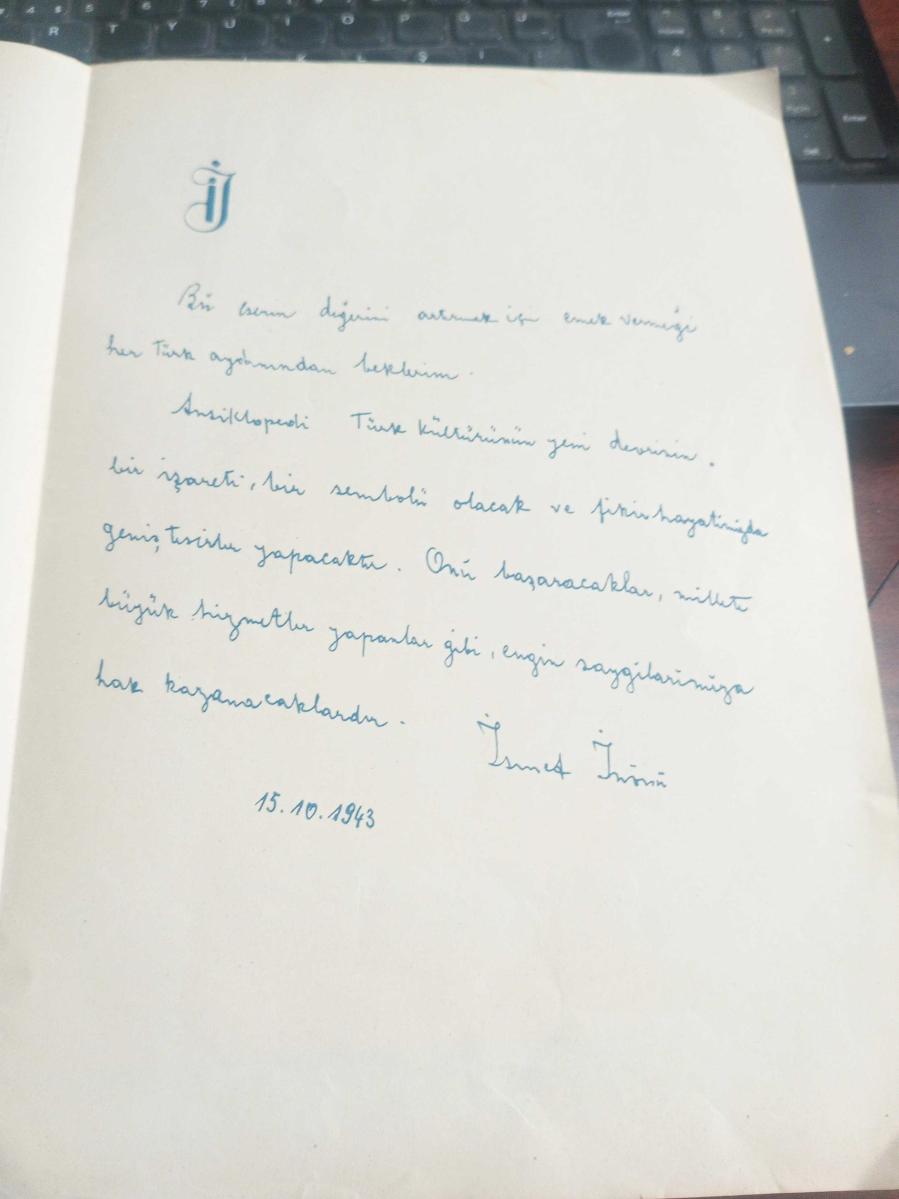 İİ
Bu eserin değerini artırmak için emek vermeği
her Türk aydınından beklerim.
Ansiklopedi Türk kültürünün yeni devrinin.
bir işareti, bir sembolü olacak ve fikir hayatimizda
geniş tesirler yapacaktır. Onu başaracaklar, millete
büyük hizmetler yapanlar gibi, engin saygılarimiza
hak kazanacaklardır.
İsmet İnönü
15.10.1943